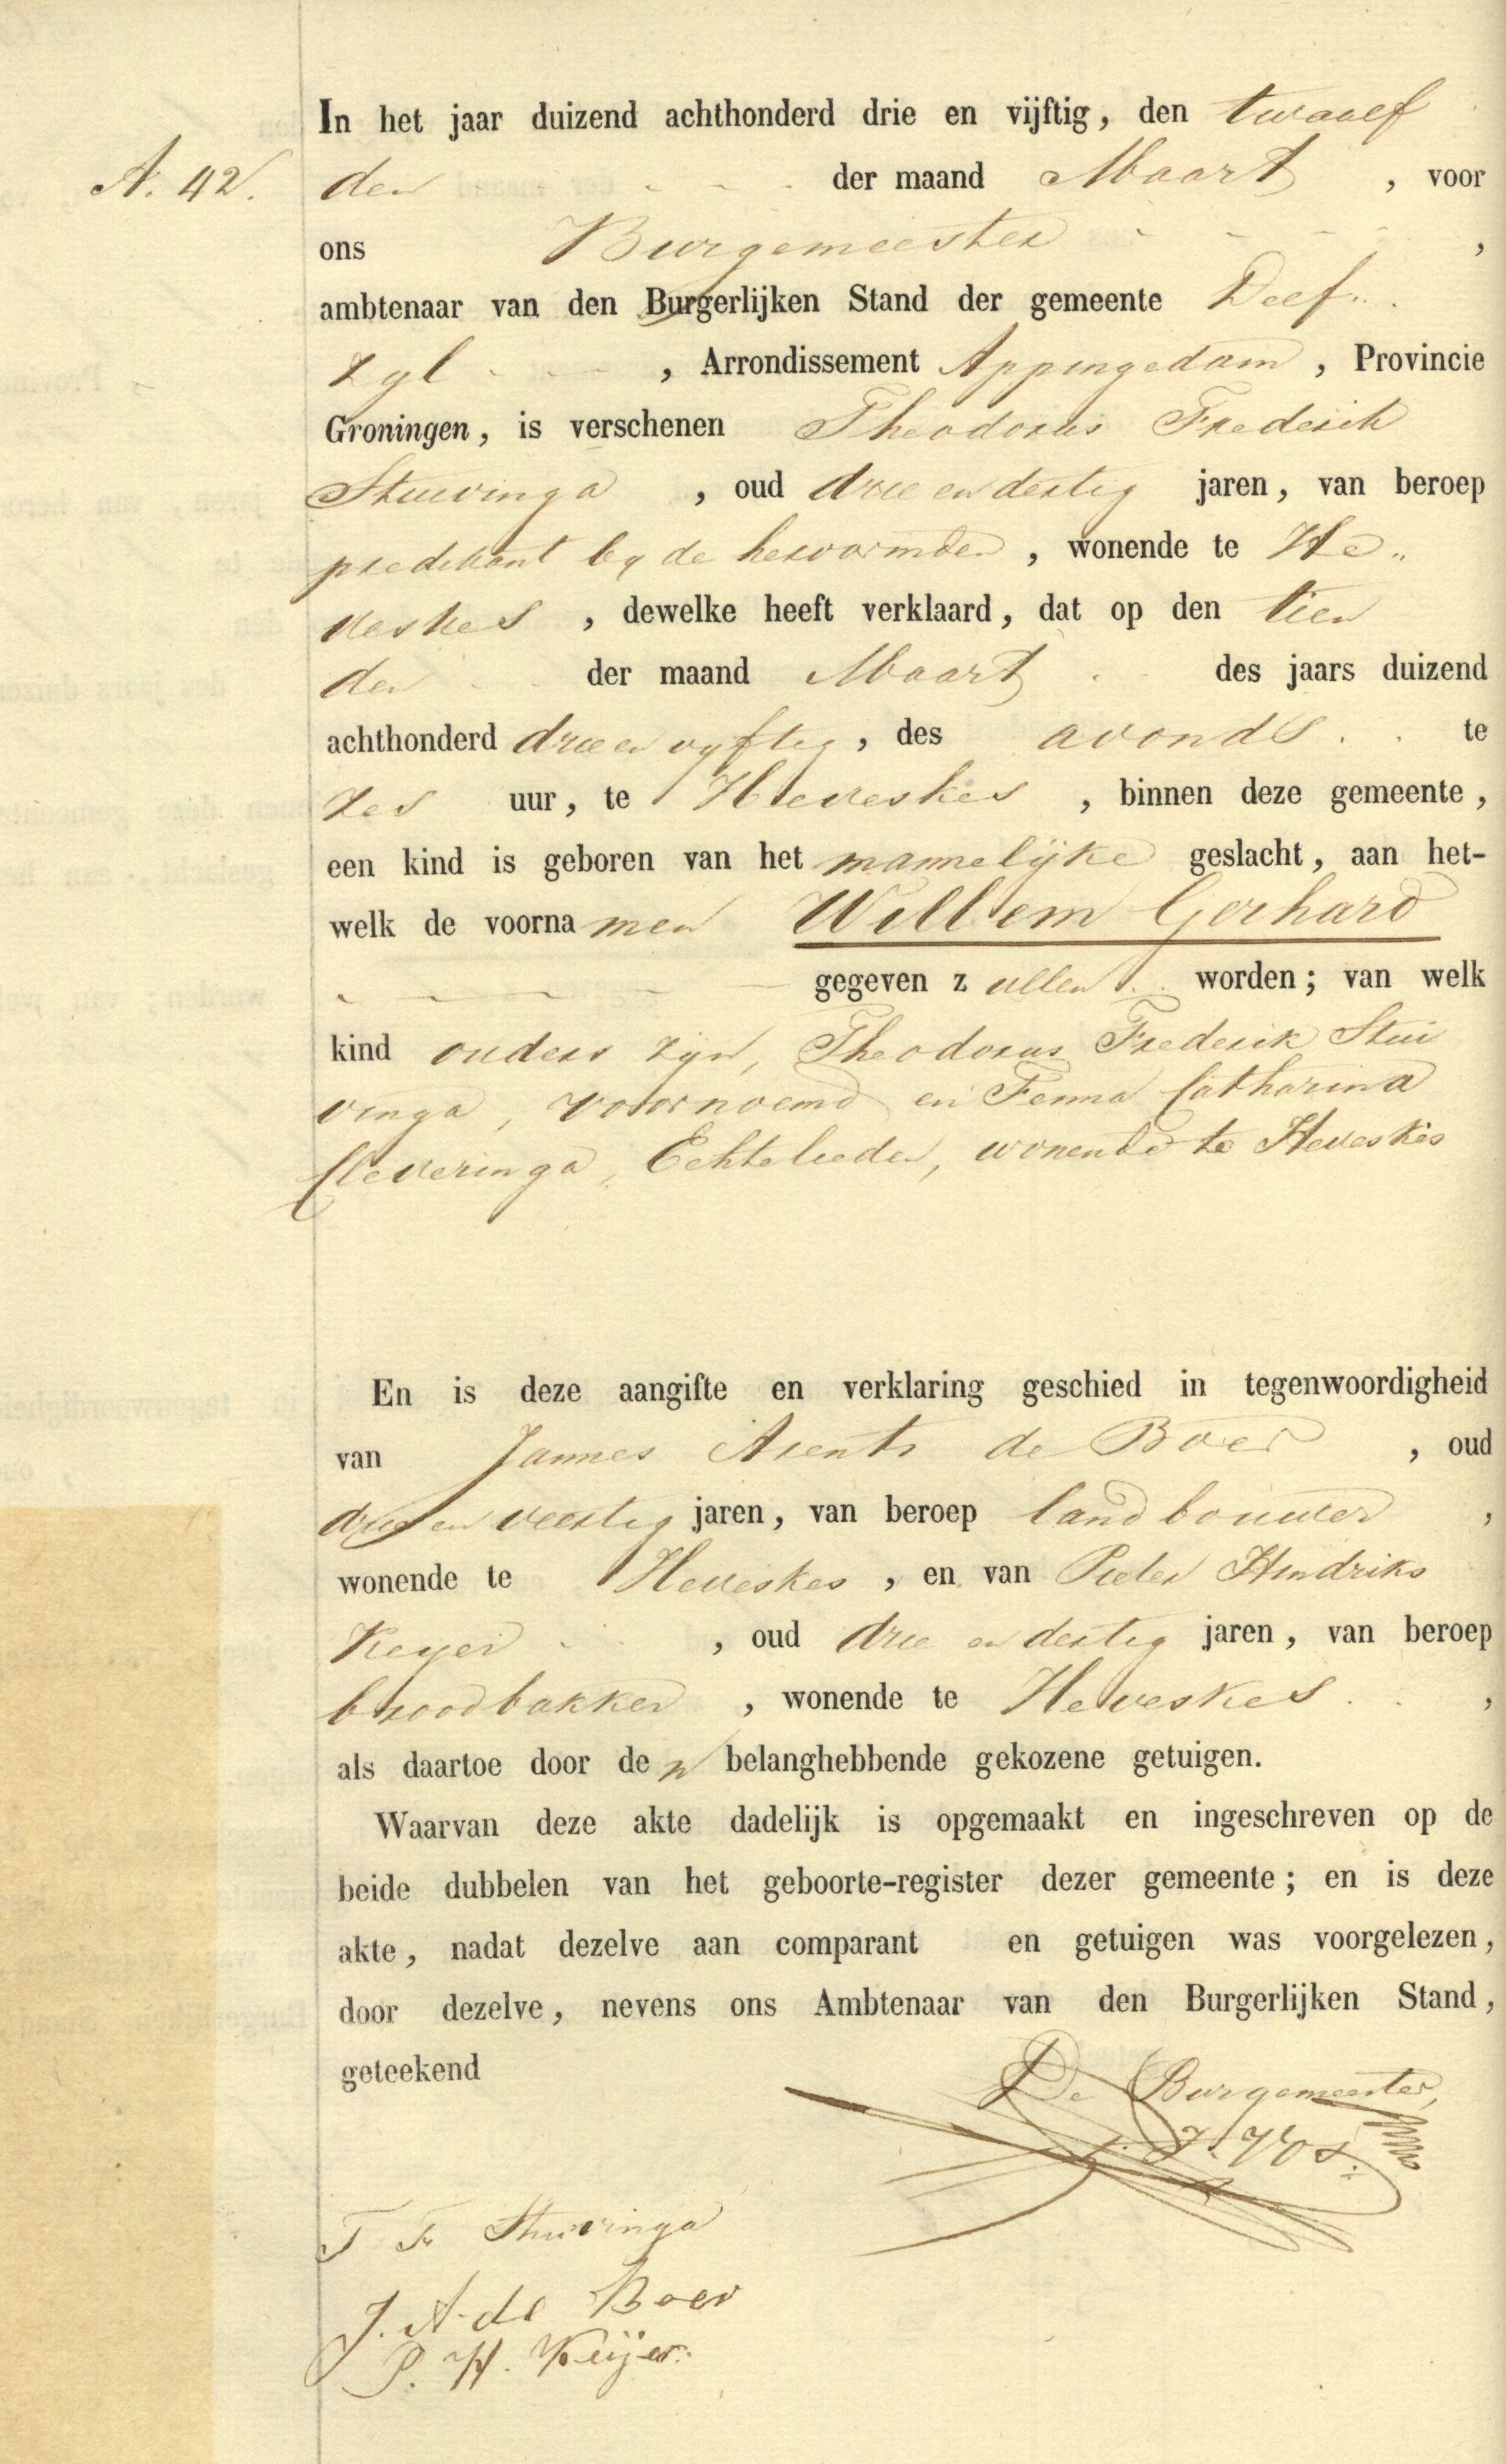 In het jaar duizend achthonderd drie en vijftig, den twaalf
A. 42. den der maand Maart, voor
ons Burgemeester,
ambtenaar van den Burgerlijken Stand der gemeente Delf„
zyl, Arrondissement Appingedam, Provincie
Groningen, is verschenen Theodorus Frederik
Stuivinga, oud drie en dertig jaren, van beroep
predikant by de hervormden, wonende te He„
veskes, dewelke heeft verklaard, dat op den tien
den der maand Maart des jaars duizend
achthonderd drie en vyftig, des avonds te
zes uur, te Heveskes, binnen deze gemeente,
een kind is geboren van het mannelijke geslacht, aan het-
welk de voornamen Willem Gerhard
gegeven zullen worden; van welk
kind ouders zyn, Theodorus Frederik Stui
vinga, voornoemd en Fenna Catharina
Cleveringa, Echtelieden, wonende te Heveskes
En is deze aangifte en verklaring geschied in tegenwoordigheid
van Jannes Arents de Boer, oud
drie en veertig jaren, van beroep landbouwer,
wonende te Heveskes, en van Pieter Hindriks
Keyer, oud drie en dertig jaren, van beroep
broodbakker, wonende te Heveskes,
als daartoe door den belanghebbende gekozene getuigen.
Waarvan deze akte dadelijk is opgemaakt en ingeschreven op de
beide dubbelen van het geboorte-register dezer gemeente; en is deze
akte, nadat dezelve aan comparant en getuigen was voorgelezen,
door dezelve, nevens ons Ambtenaar van den Burgerlijken Stand,
geteekend
De Burgemeester,
Vos.
T F Stuivinga
J. A. de Boer
P. H. Keijer.